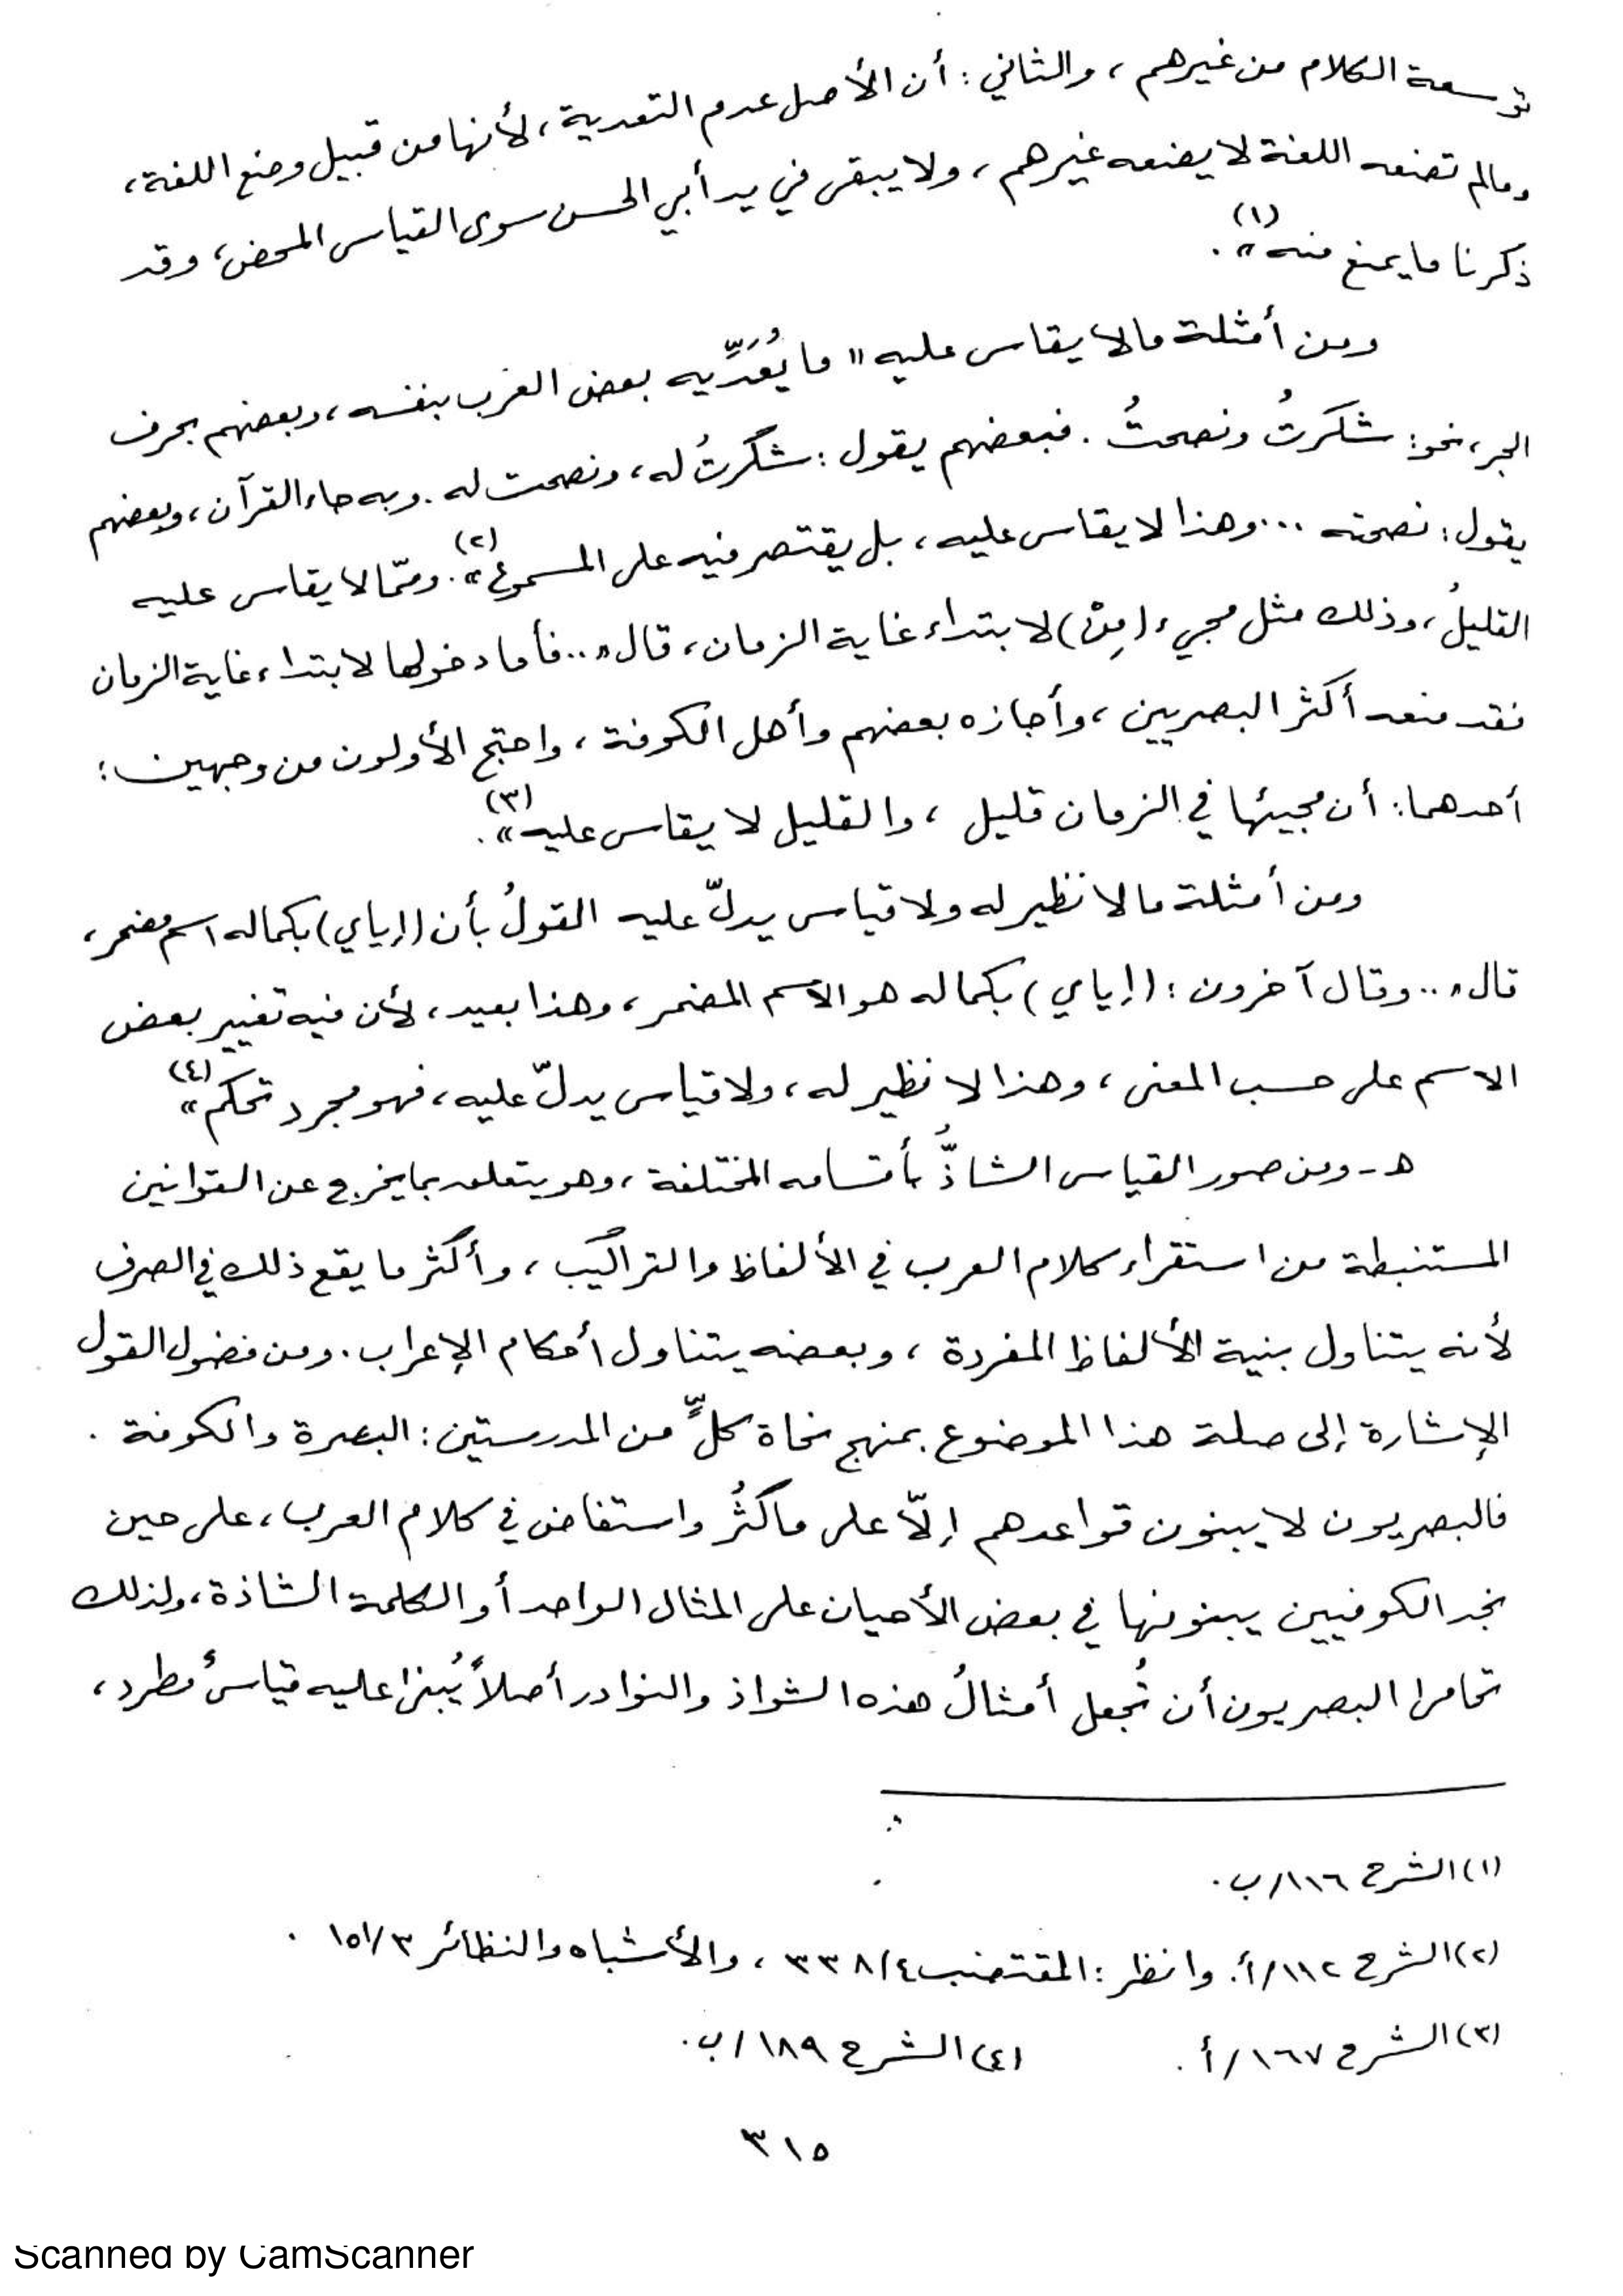 توسعة الكلام من غيرهم، والثاني: أن الأصل عدم التعدية، لأنها من قبيل وضع اللغة،
وما لم تضعه اللغة لا يضعه غيرهم، ولا يبقى في يد أبي الحسن سوى القياس المحض، وقد
ذكرنا ما يمنع منه»(١).
ومن أمثلة ما لا يقاس عليه «ما يُعَدِّيه بعض العرب بنفسه، وبعضهم بحرف
الجر، نحو: شكرتُ ونصحتُ. فبعضهم يقول: شكرتُ له، ونصحت له. وبه جاء القرآن، وبعضهم
يقول: نصحته ... وهذا لا يقاس عليه، بل يقتصر فيه على المسموع»(٢). وممّا لا يقاس عليه
القليلُ، وذلك مثل مجيء (مِنْ) لابتداء غاية الزمان، قال «.. فأما دخولها لابتداء غاية الزمان
فقد منعه أكثر البصريين، وأجازه بعضهم وأهل الكوفة، واحتج الأولون من وجهين:
أحدهما: أن مجيئها في الزمان قليل، والقليل لا يقاس عليه»(٣).
ومن أمثلة ما لا نظير له ولا قياس يدلّ عليه القولُ بأن (إياي) بكماله اسم مضمر،
قال «.. وقال آخرون: (إياي) بكماله هو الاسم المضمر، وهذا بعيد، لأن فيه تغيير بعض
الاسم على حسب المعنى، وهذا لا نظير له، ولا قياس يدلّ عليه، فهو مجرد تحكم»(٤)
هـ - ومن صور القياس الشاذُّ بأقسامه المختلفة، وهو يتعلق بما يخرج عن القوانين
المستنبطة من استقراء كلام العرب في الألفاظ والتراكيب، وأكثر ما يقع ذلك في الصرف
لأنه يتناول بنية الألفاظ المفردة، وبعضه يتناول أحكام الإعراب. ومن فضول القول
الإشارة إلى صلة هذا الموضوع بمنهج نحاة كلٍّ من المدرستين: البصرة والكوفة.
فالبصريون لا يبنون قواعدهم إلّا على ما كثُر واستفاض في كلام العرب، على حين
نجد الكوفيين يبنونها في بعض الأحيان على المثال الواحد أو الكلمة الشاذة، ولذلك
تحامى البصريون أن تُجعل أمثالُ هذه الشواذ والنوادر أصلاً يُبنى عليه قياسٌ مطرد،
(١) الشرح ١١٦/ب.
(٢) الشرح ١١٢/أ. وانظر: المقتضب ٣٣٨/٤، والأشباه والنظائر ١٥١/٣.
(٣) الشرح ١٦٧/أ. (٤) الشرح ١٨٩/ب.
٣١٥
Scanned by CamScanner